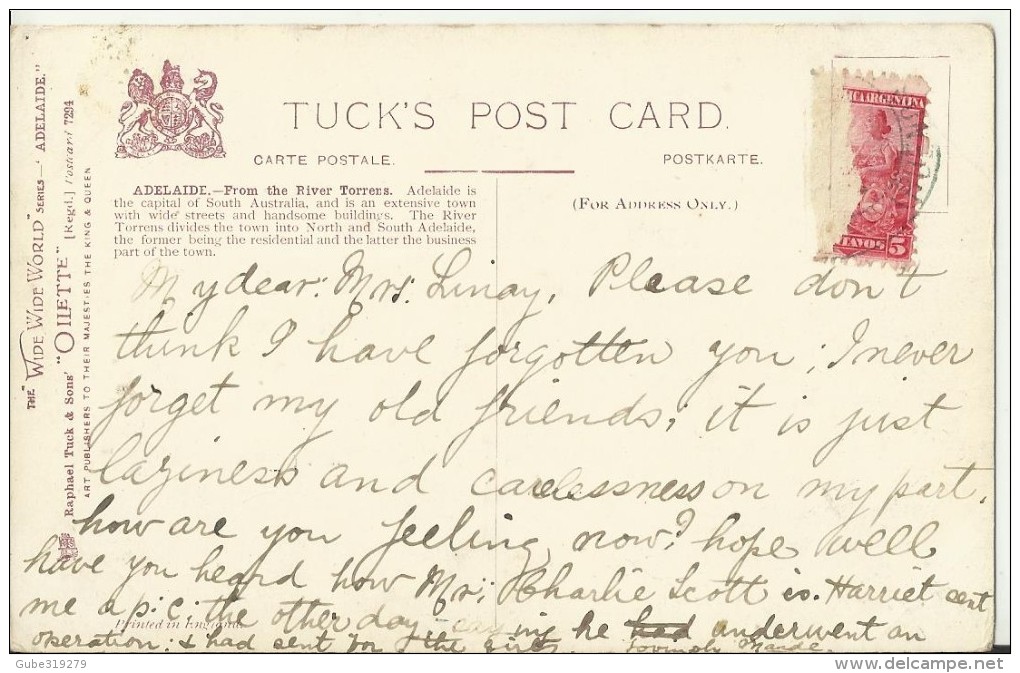 THE "WIDE WIDE WORLD" SERIES—"ADELAIDE."
Raphael Tuck & Sons' "OILETTE" [Regd.] Postcard 7294
ART PUBLISHERS TO THEIR MAJESTIES THE KING & QUEEN
TUCK'S POST CARD.
CARTE POSTALE. POSTKARTE.
ADELAIDE.—From the River Torrens. Adelaide is
the capital of South Australia, and is an extensive town
with wide streets and handsome buildings. The River
Torrens divides the town into North and South Adelaide,
the former being the residential and the latter the business
part of the town.
(FOR ADDRESS ONLY.)
ARGENTINA
TAVOS 5
My dear: Mrs. Linay, Please don't
think I have forgotten you; I never
forget my old friends; it is just
laziness and carelessness on my part.
how are you feeling now? hope well
have you heard how Mr; Charlie Scott is. Harriet sent
me a p: c: the other day saying he had underwent an
Printed in England.
operation: & had sent for the girls. Lovingly Maude.
Gube319279
delcampe.net